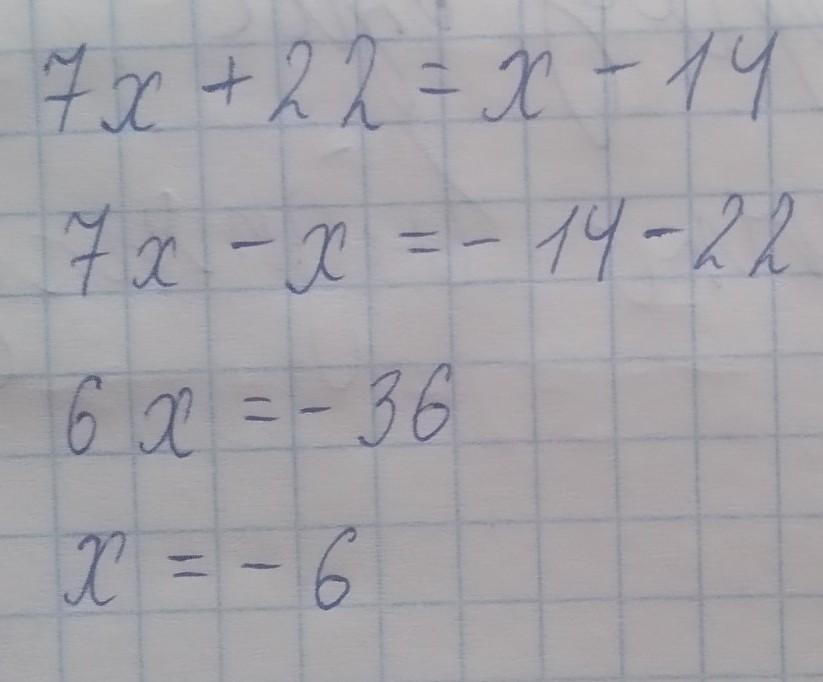 7x + 22 = x - 14
7x - x = - 14 - 22
6x = - 36
x = - 6